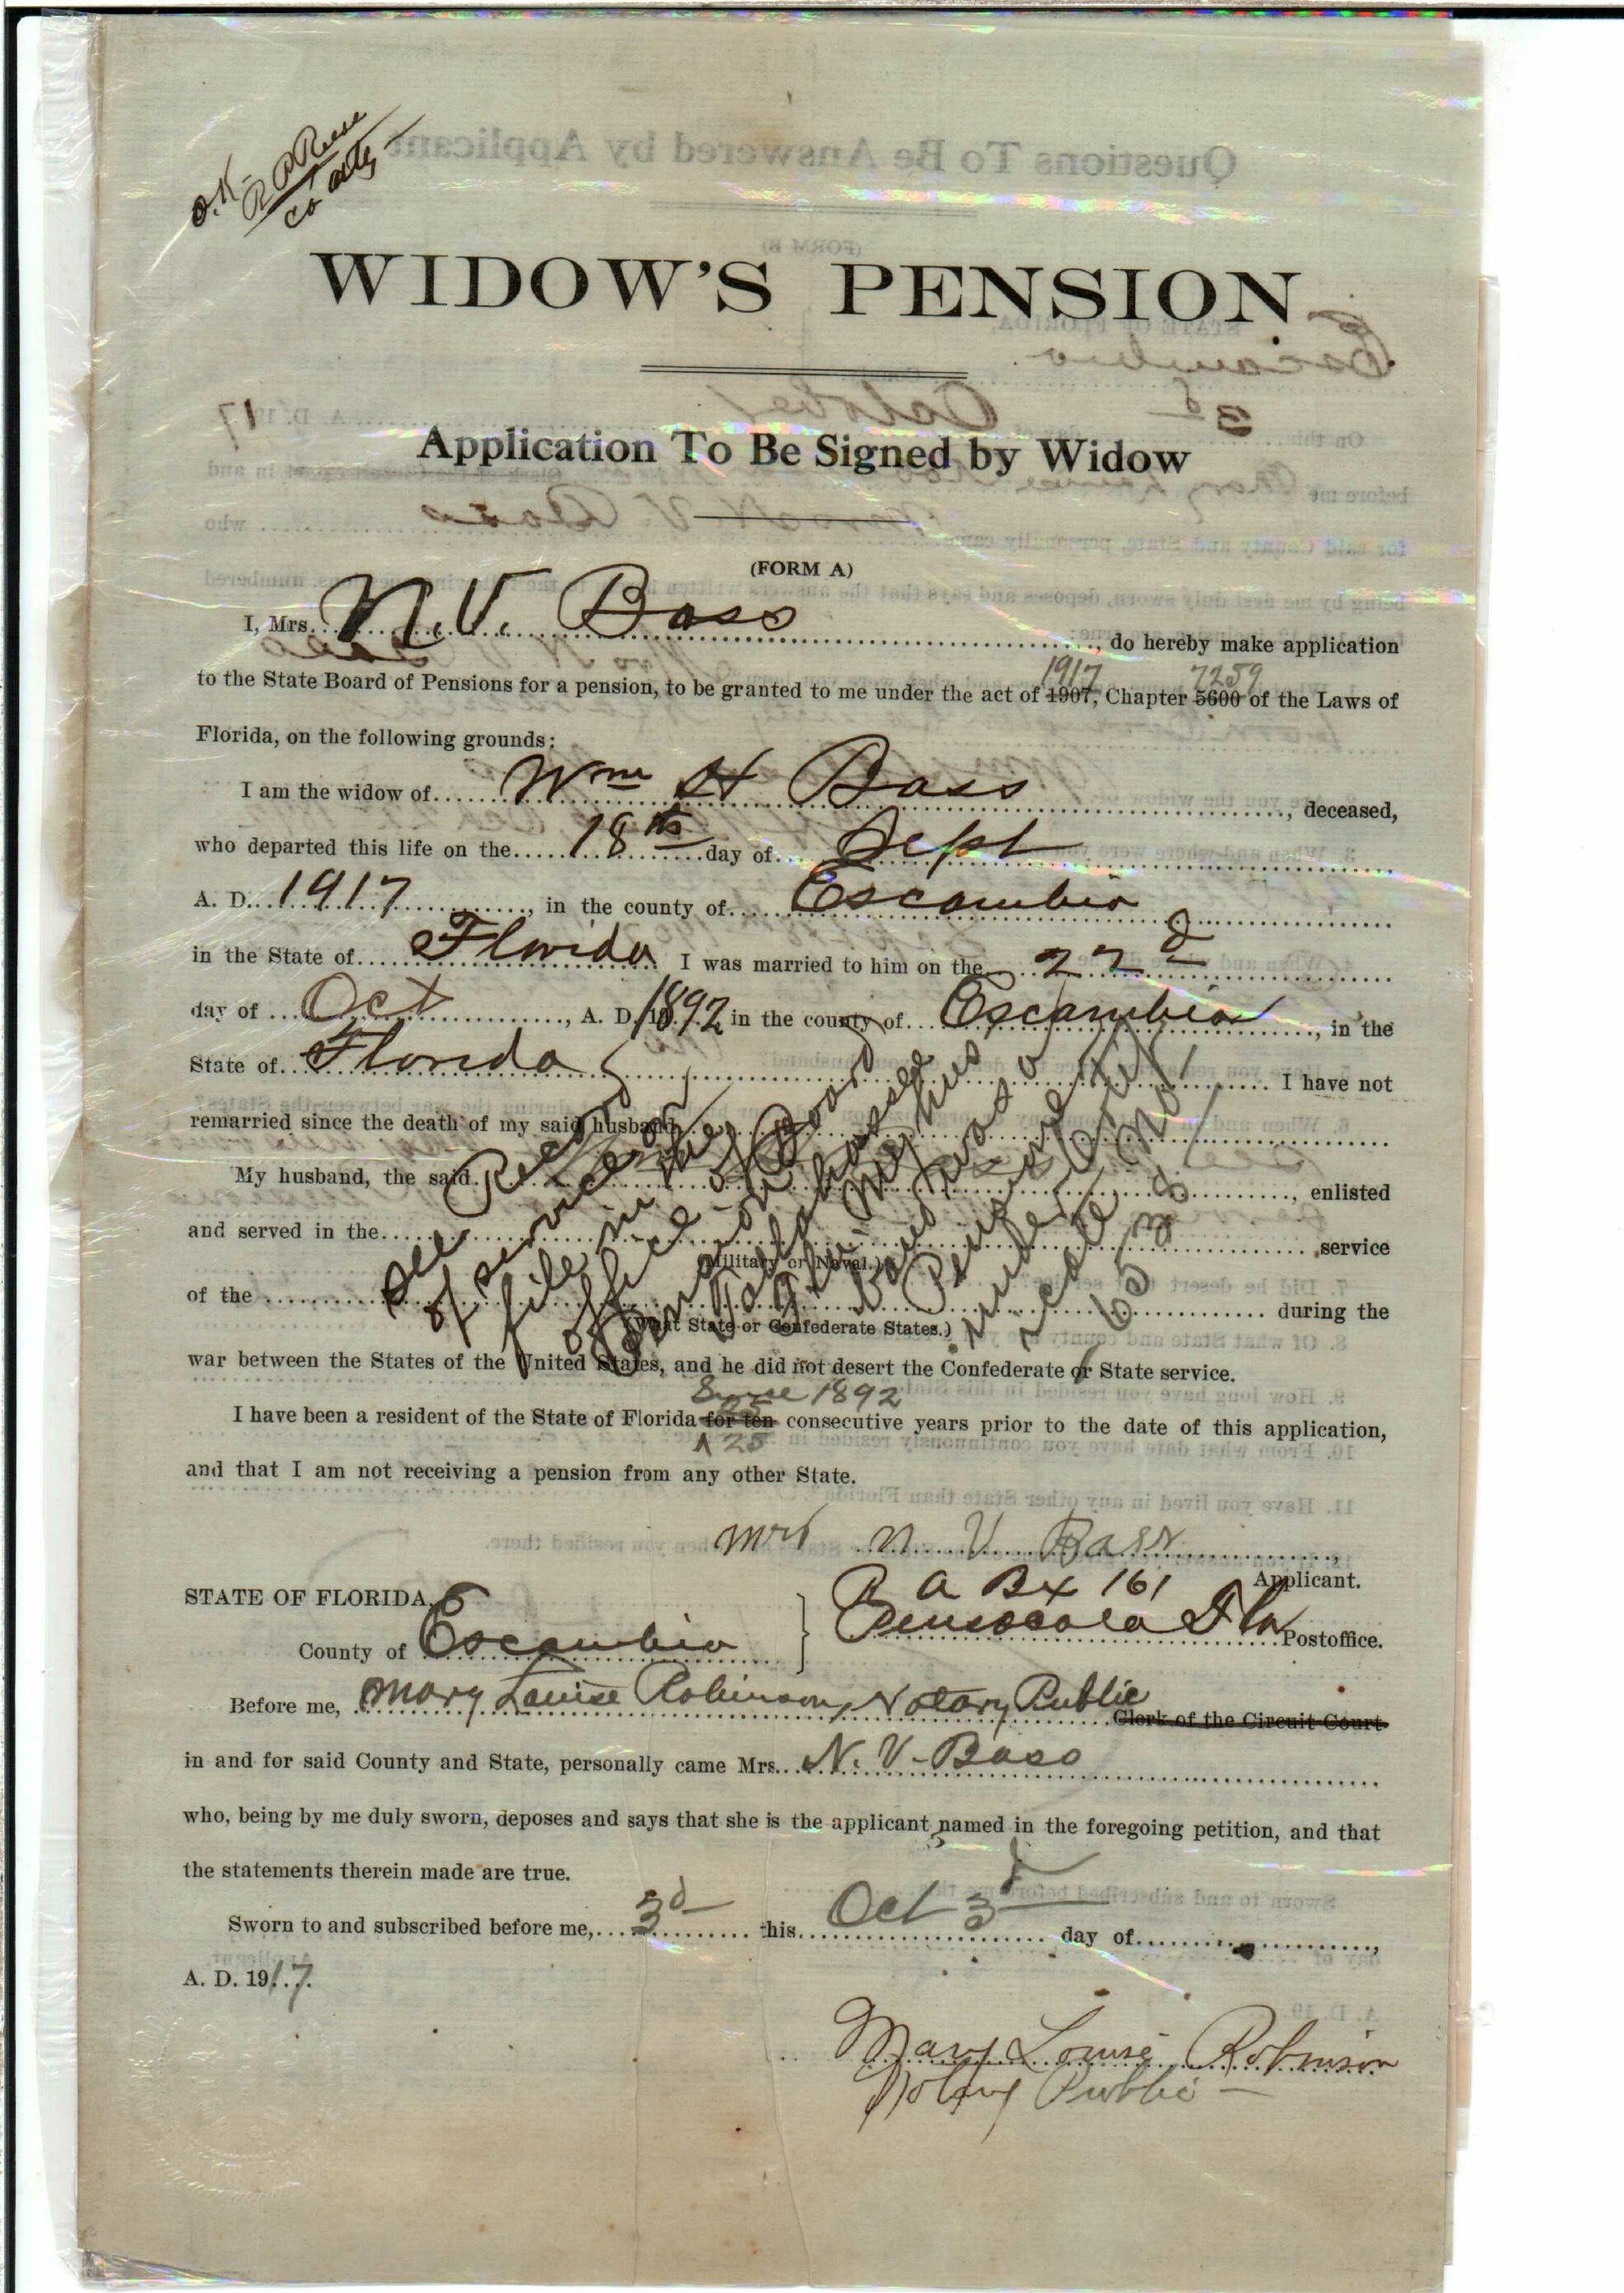 O.K.
R A Reese
Co atty
WIDOW'S PENSION
Application To Be Signed by Widow
(FORM A)
I, Mrs. N. V. Bass, do hereby make application
1917 7259
to the State Board of Pensions for a pension, to be granted to me under the act of 1907, Chapter 5600 of the Laws of
Florida, on the following grounds:
I am the widow of Wm H Bass, deceased,
who departed this life on the 18th day of Sept
A. D. 1917, in the county of Escambia
in the State of Florida I was married to him on the 22d
day of Oct, A. D. 1892 in the county of Escambia, in the
State of Florida I have not
remarried since the death of my said husband
My husband, the said, enlisted
and served in the service
(Military or Naval.)
of the during the
(What State or Confederate States.)
See Record
of service on
file in the
office of Board
Pensions
Tallahassee
Fla. My hus
band was a
Pensioner
under Certif
icate No.
6538.
war between the States of the United States, and he did not desert the Confederate or State service.
Since 1892
I have been a resident of the State of Florida for ten consecutive years prior to the date of this application,
25
and that I am not receiving a pension from any other State.
Mrs N. V. Bass
Applicant.
R A Bx 161
STATE OF FLORIDA,
Pensacola Fla Postoffice.
County of Escambia
Before me, Mary Louise Robinson, Notary Public Clerk of the Circuit Court
in and for said County and State, personally came Mrs. N. V. Bass
who, being by me duly sworn, deposes and says that she is the applicant named in the foregoing petition, and that
the statements therein made are true.
Sworn to and subscribed before me, 3d this Oct 3d day of,
A. D. 1917.
Mary Louise Robinson
Notary Public